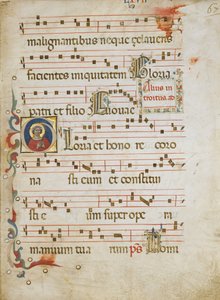 malignantibus neque zelaveris
facientes iniquitatem Gloria
patri et filio Euouae
Gloria et hono re coro
na sti eum et constitui
sti e um super ope ra
manuum tua rum ps Domi